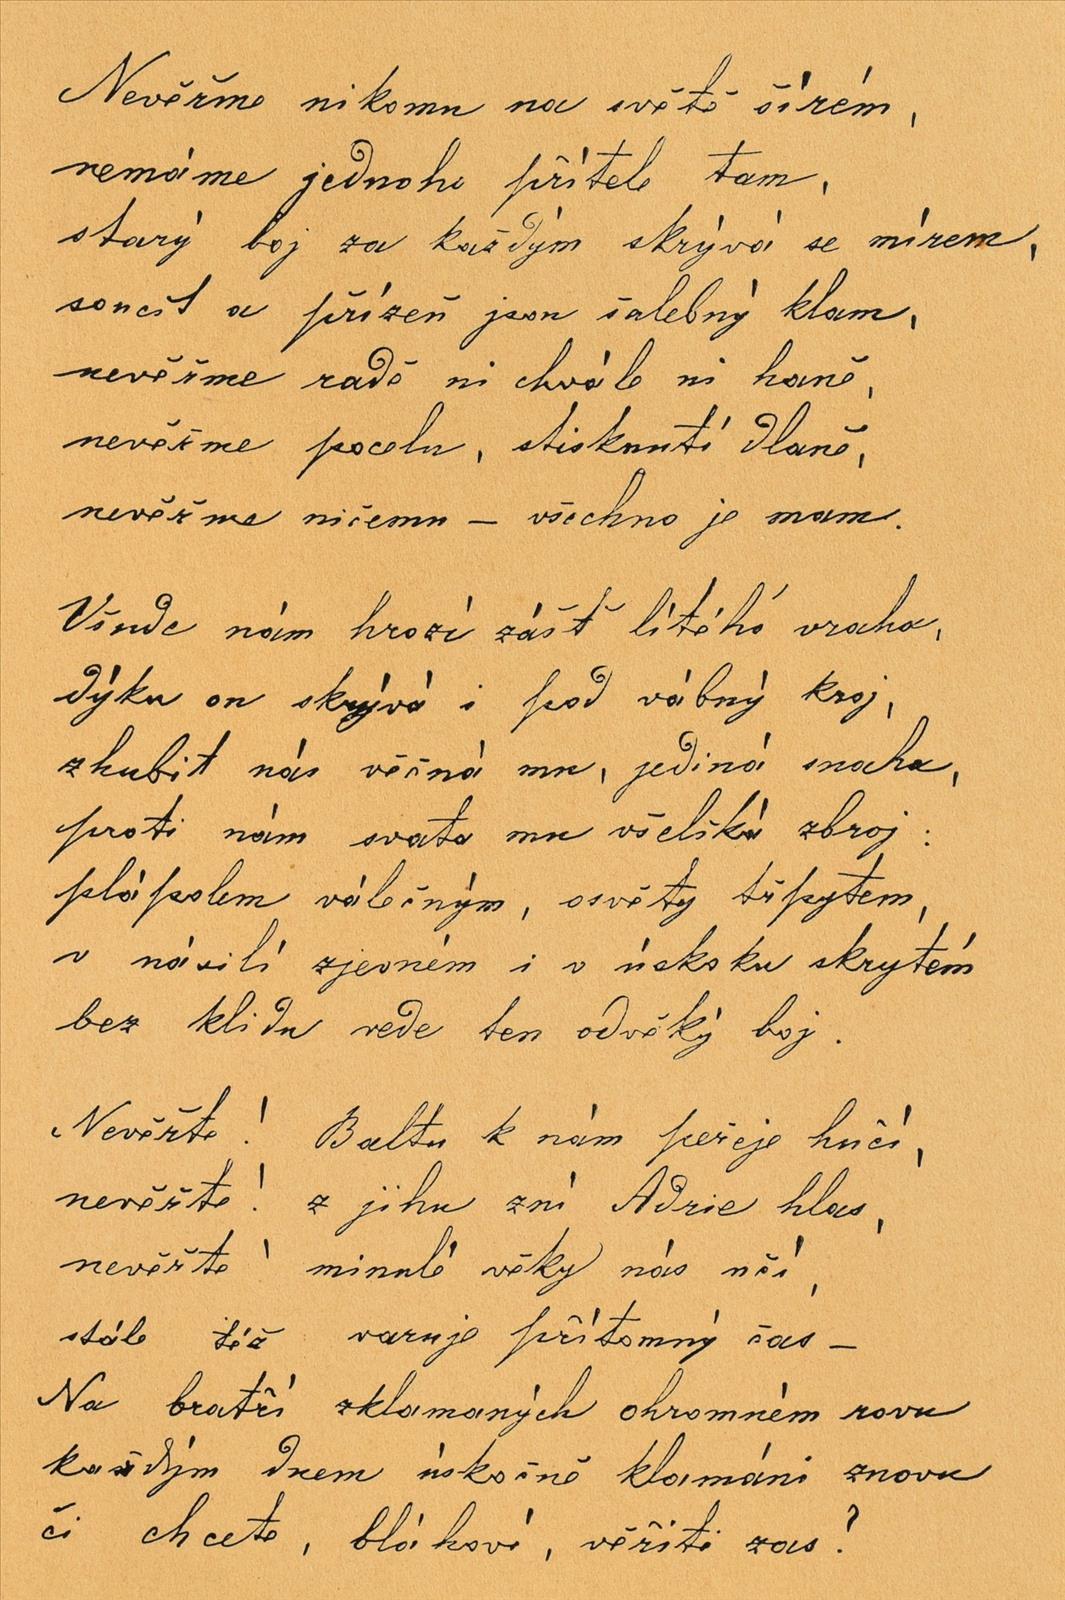 Nevěřme nikomu na světě šírém,
nemáme jednoho přítele tam,
starý boj za každým skrývá se mírem,
soucit a přízeň jsou šalebný klam,
nevěřme radě ni chvále ni haně,
nevěřme pocelu, stisknutí dlaně,
nevěřme ničemu – všechno je mam.
Všude nám hrozí zášť lítého vraha,
dýku on skrývá i pod vábný kroj,
zhubit nás věčná mu, jediná snaha,
proti nám svata mu všeliká zbroj:
plápolem válečným, osvěty třpytem,
v násilí zjevném i v úskoku skrytém
bez klidu vede ten odvěký boj.
Nevěřte! Baltu k nám peřeje hučí,
nevěřte! z jihu zní Adrie hlas,
nevěřte! minulé věky nás učí,
stále též varuje přítomný čas –
Na bratří zklamaných ohromném rovu
každým dnem úskočně klamáni znovu
či chcete, bláhové, věřiti zas?